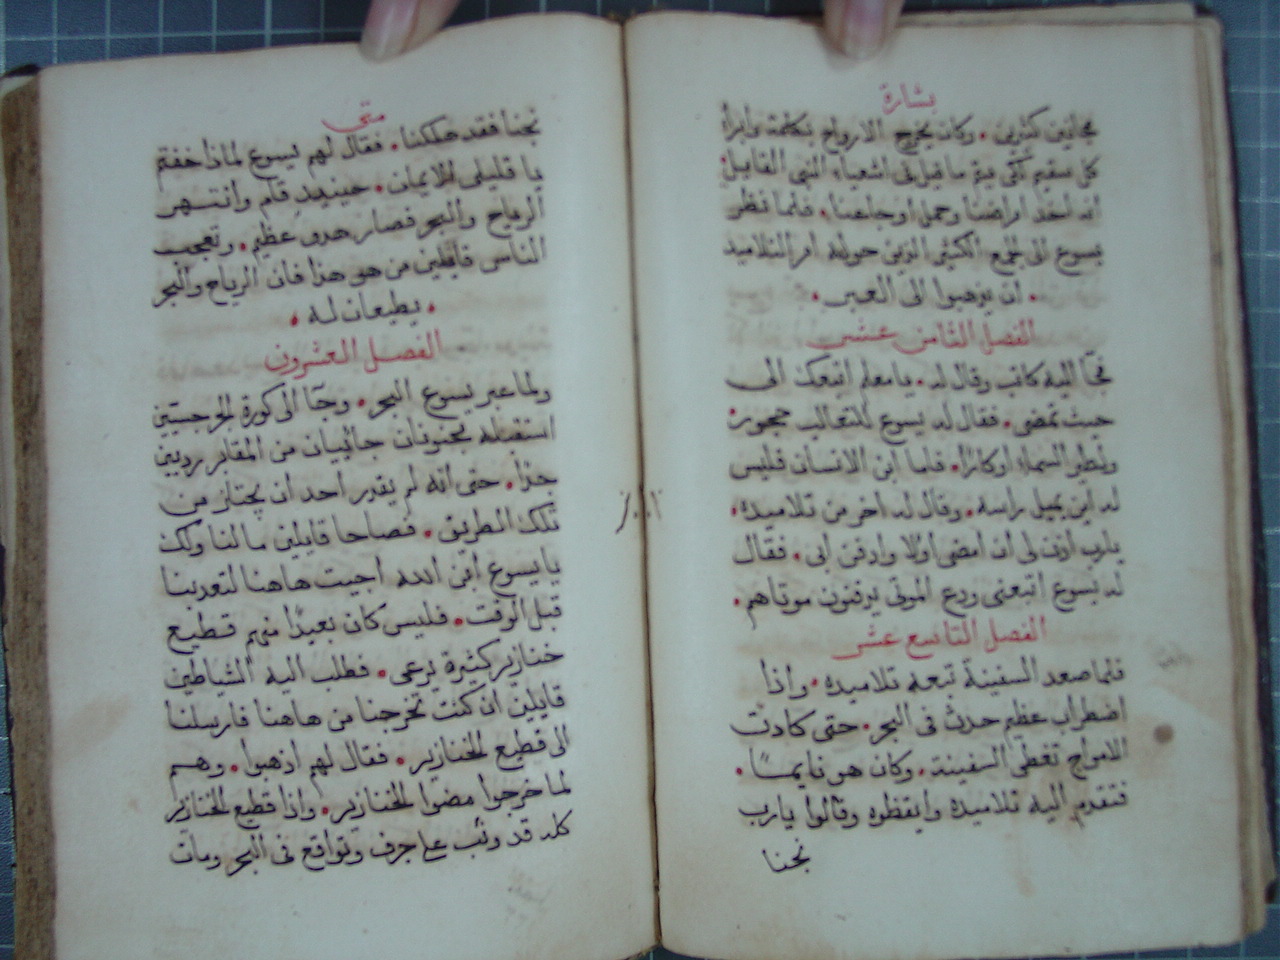 بشارة
مجانين كثيرين. وكان يخرج الارواح بكلمة وابرأ
كل سقيم لكي يتم ما قيل في اشعياء النبي القايل
انه اخذ امراضنا وحمل اوجاعنا. فلما نظر
يسوع الى الجمع الكثير الذين حوله امر التلاميذ
. ان يذهبوا الى العبر.
الفصل الثامن عشر
فجآ اليه كاتب وقال له. يا معلم اتبعك الى
حيث تمضي. فقال له يسوع للثعالب جحور
ولطير السماء اوكارًا. فاما ابن الانسان فليس
له اين يميل راسه. وقال له اخر من تلاميذه.
يارب اذن لي ان امضي اولًا وادفن ابي. فقال
له يسوع اتبعني ودع الموتى يدفنون موتاهم.
الفصل التاسع عشر
فلما صعد السفينة تبعه تلاميذه. واذا
اضطراب عظيم حدث في البحر. حتى كادت
الامواج تغطي السفينة. وكان هو نايمًا.
فتقدم اليه تلاميذه وايقظوه وقالوا يارب
نجنا
متى
نجنا فقد هلكنا. فقال لهم يسوع لماذا خفتم
يا قليلي الايمان. حينيذ قام وانتهر
الرياح والبحر فصار هدو عظيم. وتعجب
الناس قايلين من هو هذا فان الرياح والبحر
. يطيعان له.
الفصل العشرون
ولما عبر يسوع البحر. وجآ الى كورة الجرجسيين
استقبله مجنونان جائيان من المقابر رديين
جدًا. حتى انه لم يقدر احد ان يجتاز من
تلك الطريق. فصاحا قايلين ما لنا ولك
يا يسوع ابن الله اجيت هاهنا لتعذبنا
قبل الوقت. فليس كان بعيدًا منهم قطيع
خنازير كثيرة يرعى. فطلب اليه الشياطين
قايلين ان كنت تخرجنا من هاهنا فارسلنا
الى قطيع الخنازير. فقال لهم اذهبوا. وهم
لما خرجوا مضوا للخنازير. واذا قطيع الخنازير
كله قد وثب على جرف وتواقع في البحر ومات